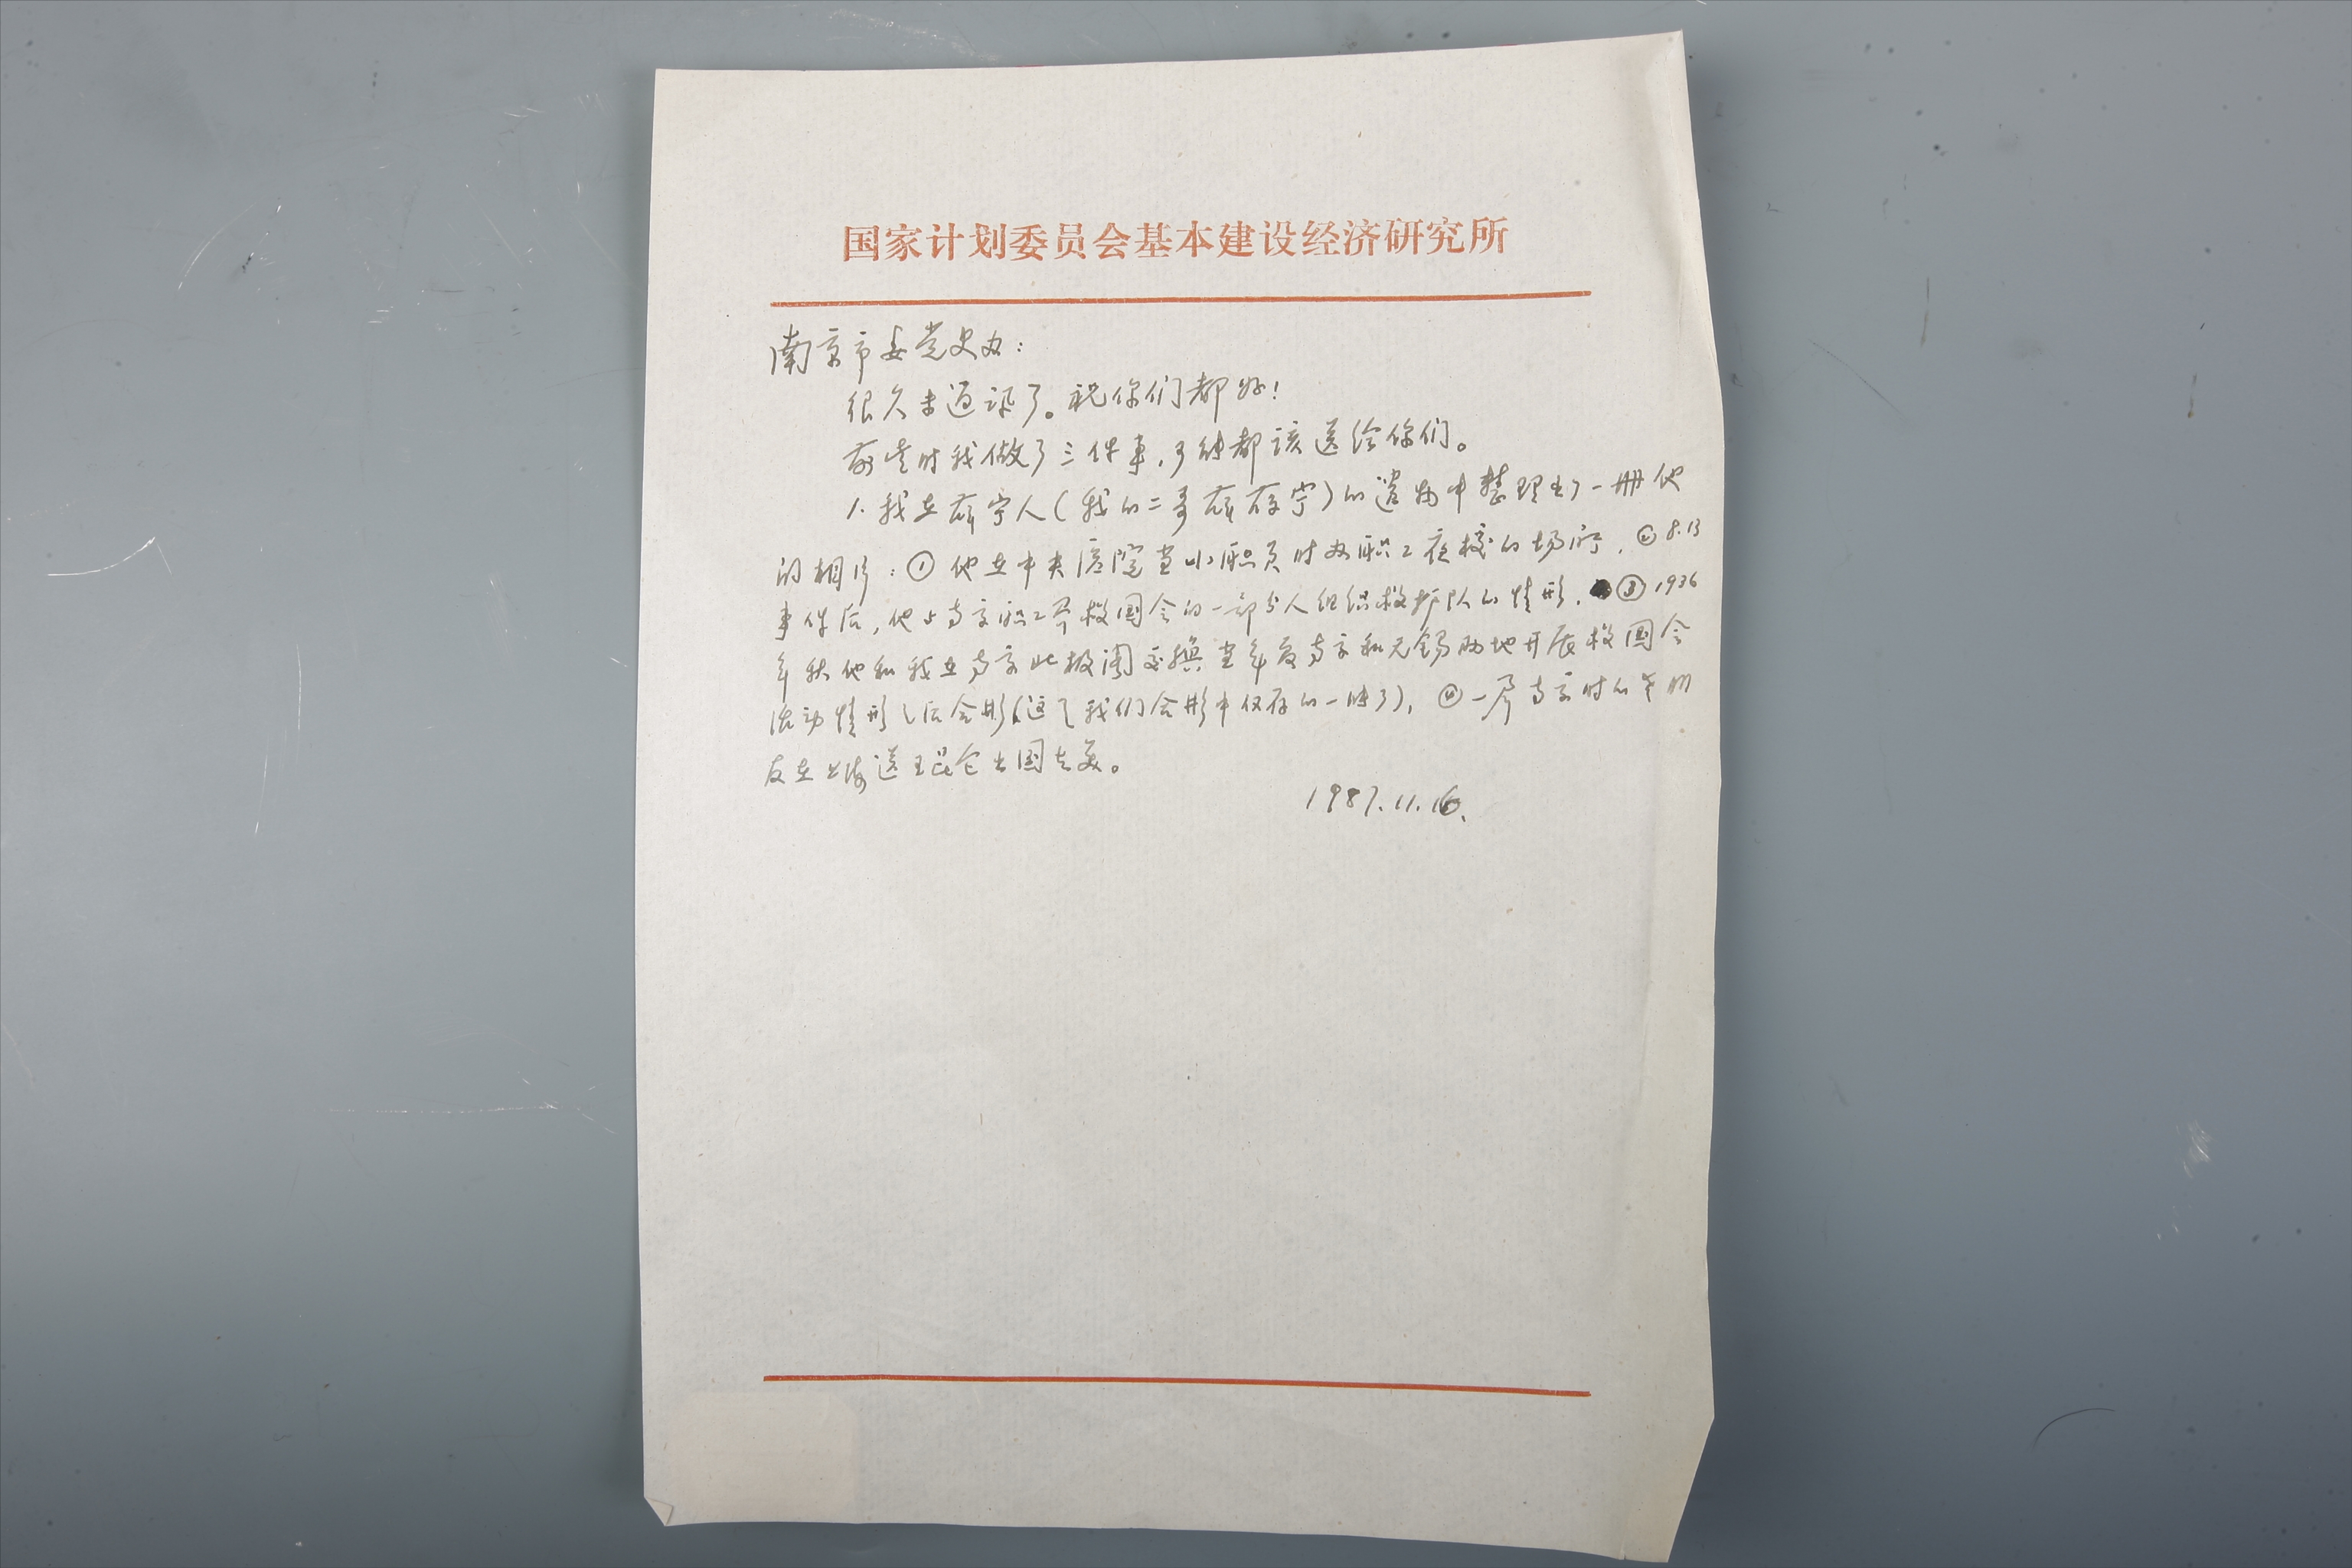 国家计划委员会基本建设经济研究所
南京市委党史办：
很久未通讯了。祝你们都好！
前些时我做了三件事，可能都该送给你们。
1. 我在薛宁人（我的二哥）的遗物中整理出了一册他
的相片：① 他在中央医院当小职员时办职工夜校的场所，② 8.13
事件后，他与南京职工界救国会的一部分人组织救护队的情形，③ 1936
年秋他和我在南京北极阁交换当年度南京和无锡两地开展救国会
活动情形之后合影（这是我们合影中仅存的一张了），④ 一群南京时的老朋
友在上海送王昆仑出国去美。
1987.11.16.